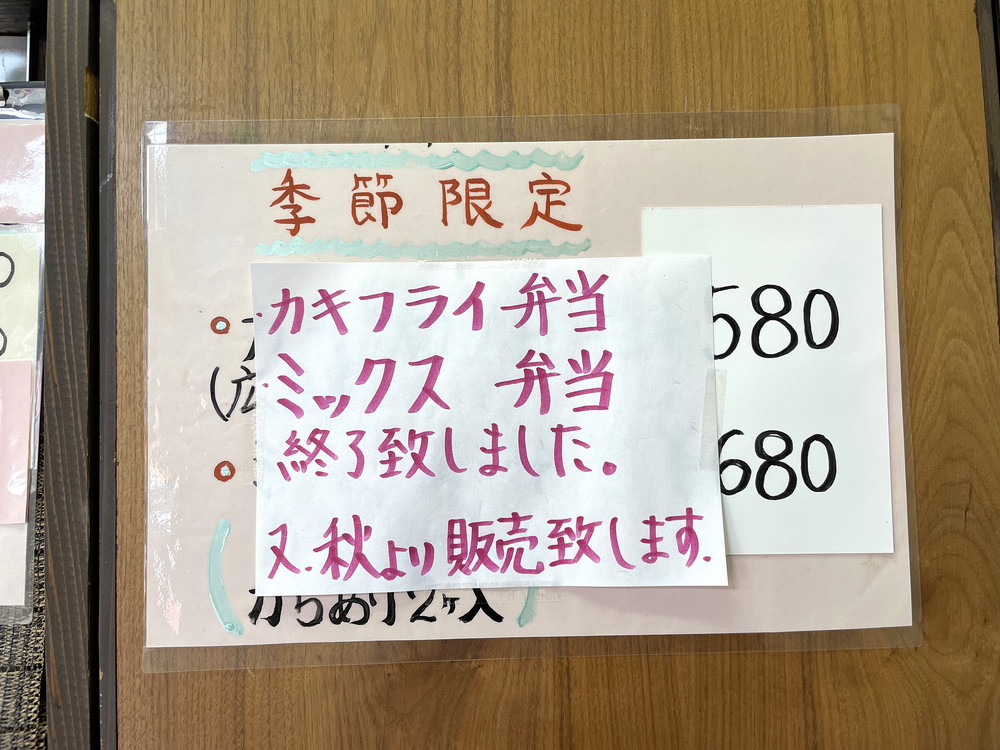 季節限定
・カキフライ弁当
・ミックス 弁当
終了致しました。
又、秋より販売致します.
680
680
(広
からあげ2ヶ入